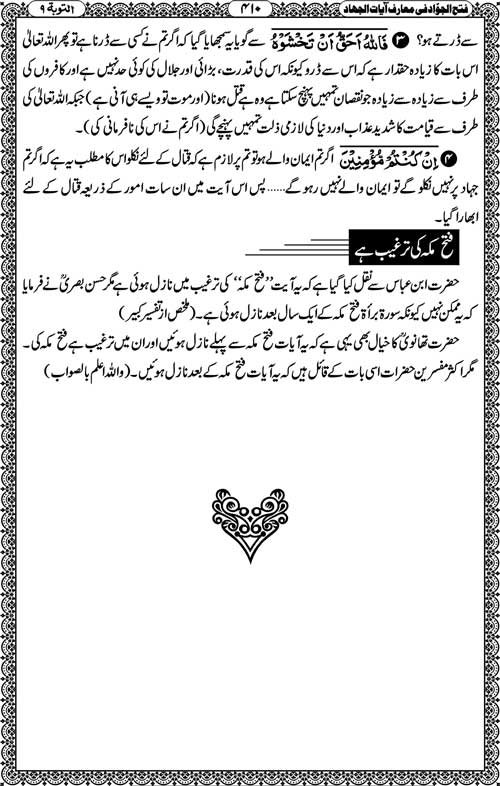 فتح الجوّاد فی معارف آیات الجهاد ۴۱۰ التوبة ۹
سے ڈرتے ہو؟ ۳ فَاللّٰهُ اَحَقُّ اَنْ تَخْشَوْهُ سے گویا یہ سمجھایا گیا کہ اگر تم نے کسی سے ڈرنا ہے تو پھر اللہ تعالیٰ
اس بات کا زیادہ حقدار ہے کہ اس سے ڈرو کیونکہ اس کی قدرت، بڑائی اور جلال کی کوئی حد نہیں ہے اور کافروں کی
طرف سے زیادہ سے زیادہ جو نقصان تمہیں پہنچ سکتا ہے وہ ہے قتل ہونا (اور موت تو ویسے ہی آنی ہے) جبکہ اللہ تعالیٰ کی
طرف سے قیامت کا شدید عذاب اور دنیا کی لازمی ذلت تمہیں پہنچے گی (اگر تم نے اس کی نافرمانی کی)۔
۴ اِنْ كُنْتُمْ مُّؤْمِنِیْنَ اگر تم ایمان والے ہو تو تم پر لازم ہے کہ قتال کے لئے نکلو اس کا مطلب یہ ہے کہ اگر تم
جہاد پر نہیں نکلو گے تو ایمان والے نہیں رہو گے...... پس اس آیت میں ان سات امور کے ذریعہ قتال کے لئے
ابھارا گیا۔
فتح مکہ کی ترغیب ہے
حضرت ابن عباس سے نقل کیا گیا ہے کہ یہ آیت ’’فتح مکہ‘‘ کی ترغیب میں نازل ہوئی ہے مگر حسن بصریؒ نے فرمایا
کہ یہ ممکن نہیں کیونکہ سورۃ برأۃ فتح مکہ کے ایک سال بعد نازل ہوئی ہے۔ (ملخص از تفسیر کبیر)
حضرت تھانویؒ کا خیال بھی یہی ہے کہ یہ آیات فتح مکہ سے پہلے نازل ہوئیں اور ان میں ترغیب ہے فتح مکہ کی۔
مگر اکثر مفسرین حضرات اسی بات کے قائل ہیں کہ یہ آیات فتح مکہ کے بعد نازل ہوئیں۔ (واللہ اعلم بالصواب)